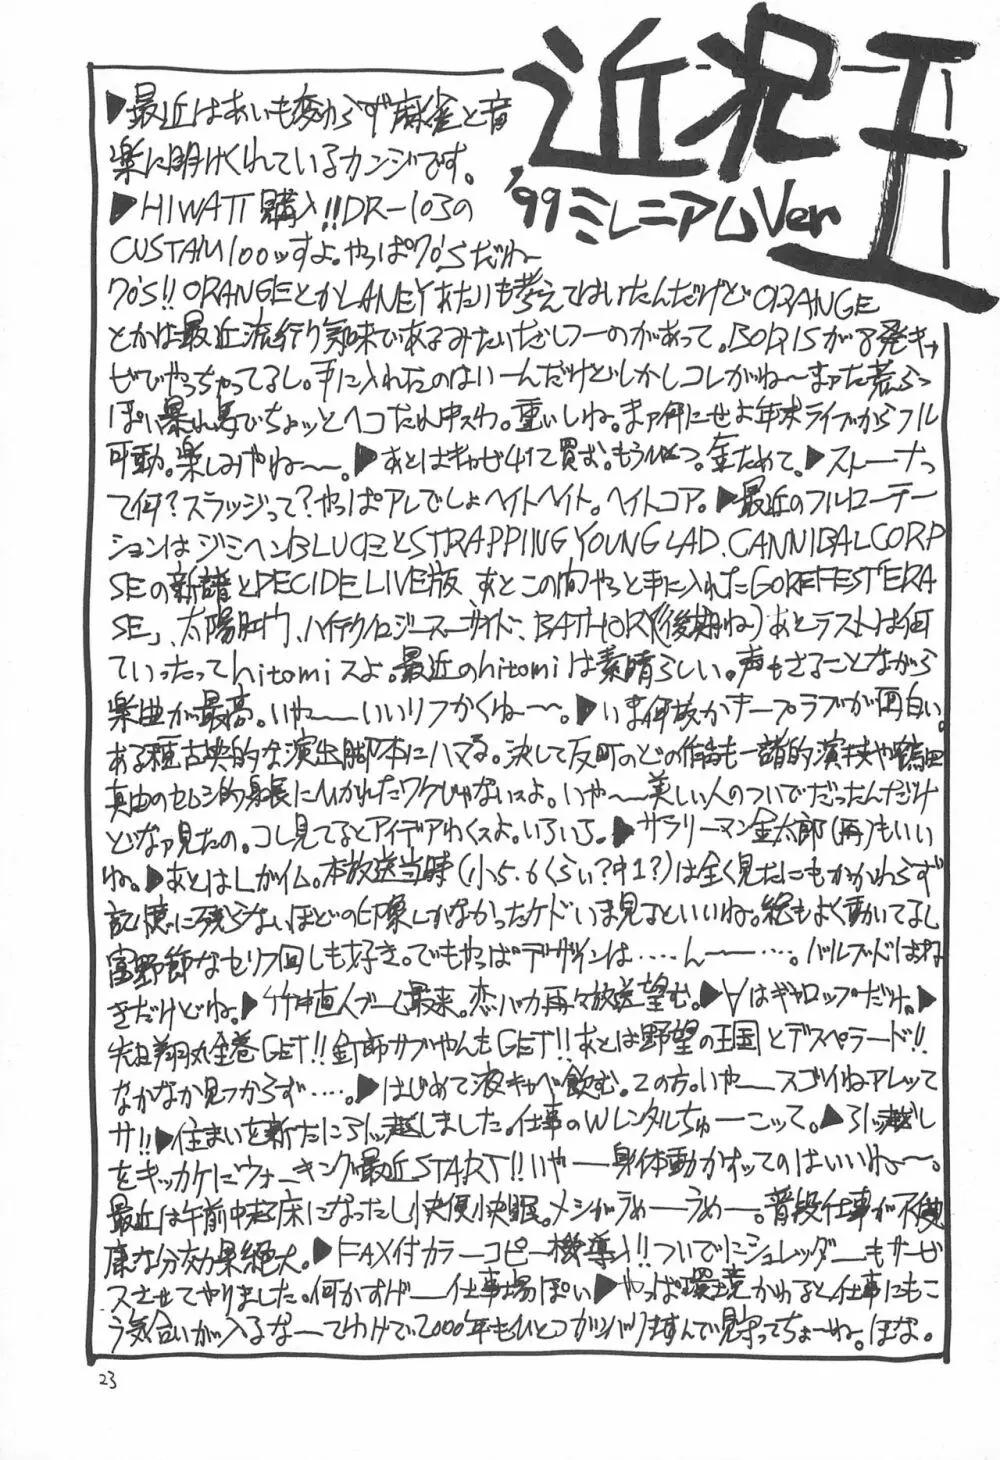 近況王
'99ミレニアムVer
▶最近はあいも変わらず麻雀と音
楽に明けくれているカンジです。
▶HIWATT購入!!DR-103の
CUSTAM100ッすよ。やっぱ70'Sだね〜
70's!!ORANGEとかLANEYあたりも考えてはいたんだけどORANGE
とかは最近流行り気味であるみたいだしつーのがあって。BORISが8発キャ
ビでやっちゃってるし。手に入れたのはいーんだけどしかしコレがね〜まァた荒っ
ぽい暴れ馬でちょッとヘコたれ中スわ。重いしね。まァ何にせよ年末ライブからフル
可動。楽しみやね〜〜。▶あとはキャビ4つて買む。もういっつ。金ためて。▶ストーナっ
て何?スラッジって?やっぱアレでしょヘイトヘイト。ヘイトコア。▶最近のフルローテー
ションはジミヘンBLUEとSTRAPPING YOUNG LAD、CANNIBAL CORP
SEの新譜とDECIDE LIVE版、あとこの間やっと手に入れたGOREFEST「ERA
SE」、太陽肛門、ハイテクノロジースーサイド、BATHORY(後期ね)あとラストは何
ていったってhitomiスよ。最近のhitomiは素晴らしい。声もさることながら
楽曲が最高。いや〜〜いいリフかくね〜〜。▶いま何故かオープラブが面白い。
ある種古典的な演出脚本にハマる。決して反町のどの作品も一諸的演技や鶴田
真由のセムシ的身長にひかれたワケじゃないスよ。いや〜〜美しい人のついでだったんだけ
どなァ見たの。コレ見てるとアイデアわくスよ。いろいろ。▶サラリーマン金太郎(再)もいい
ね。▶あとはLガイム。本放送当時(小5.6くらい?中1?)は全く見たにもかかわらず
記憶に残らないほどの印象しかなかったケドいま見るといいね。絵もよく動いてるし
富野節なセリフ回しも好き。でもやっぱデザインは……ん〜〜……。バルブドはね
きだけどね。▶竹中直人ブーム最来。恋バカ再々放送望む。▶∀はギャロップだけ。▶
先日翔丸全巻GET!!釘師サブやんもGET!!あとは野望の王国とデスペラード!!
なかなか見つからず……。▶はじめて液キャベ飲む。2の方。いや〜スゴイねアレッて
サ!!▶住まいを新たに引ッ越しました。仕事のWレンタルちゅーこッて。▶引ッ越し
をキッカケにウォーキング最近START!!いや〜身体動かすッてのはいいね〜。
最近は午前中起床になったし快便快眠。メシがうめーうめー。普段仕事が不健
康な分効果絶大。▶FAX付カラーコピー機導入!!ついでにシュレッダーもサービ
スさせてやりました。何かすげー仕事場ぽい▶やっぱ環境かわると仕事にもこ
う気合いが入るなーてわけで2000年もひとつガンバりますんで見守ってちょーね。ほな。
23